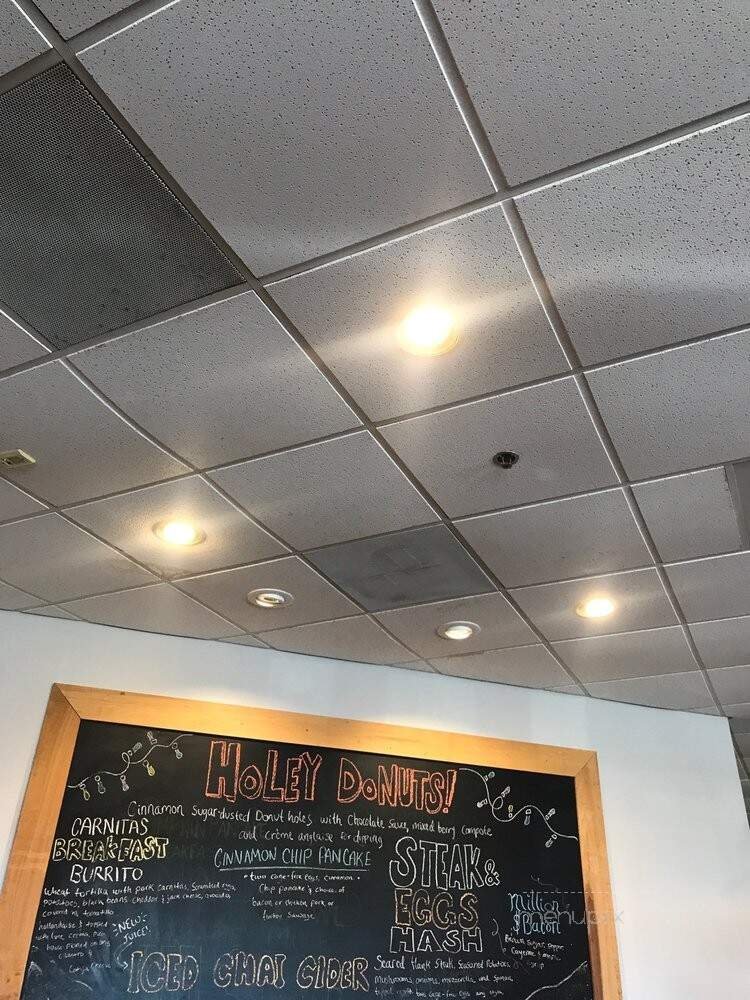 HOLEY DONUTS!
Cinnamon Sugar-dusted Donut holes with Chocolate Sauce, mixed berry compote
and crème anglaise for dipping
CARNITAS
BREAKFAST
BURRITO
Wheat tortilla with pork carnitas, Scrambled eggs,
potatoes, black beans cheddar & jack cheese, avocado
CINNAMON CHIP PANCAKE
two cage-free eggs, cinnamon
Chip pancake & choice of
bacon or chicken, pork or
turkey Sausage
STEAK &
EGGS
HASH
Seared Flank Steak, Seasoned Potatoes,
Mushrooms, onions, mozzarella, and
Million
$ Bacon
Brown Sugar,
Cayenne &
NEW
JUICE!
ICED CHAI CIDER
menupix